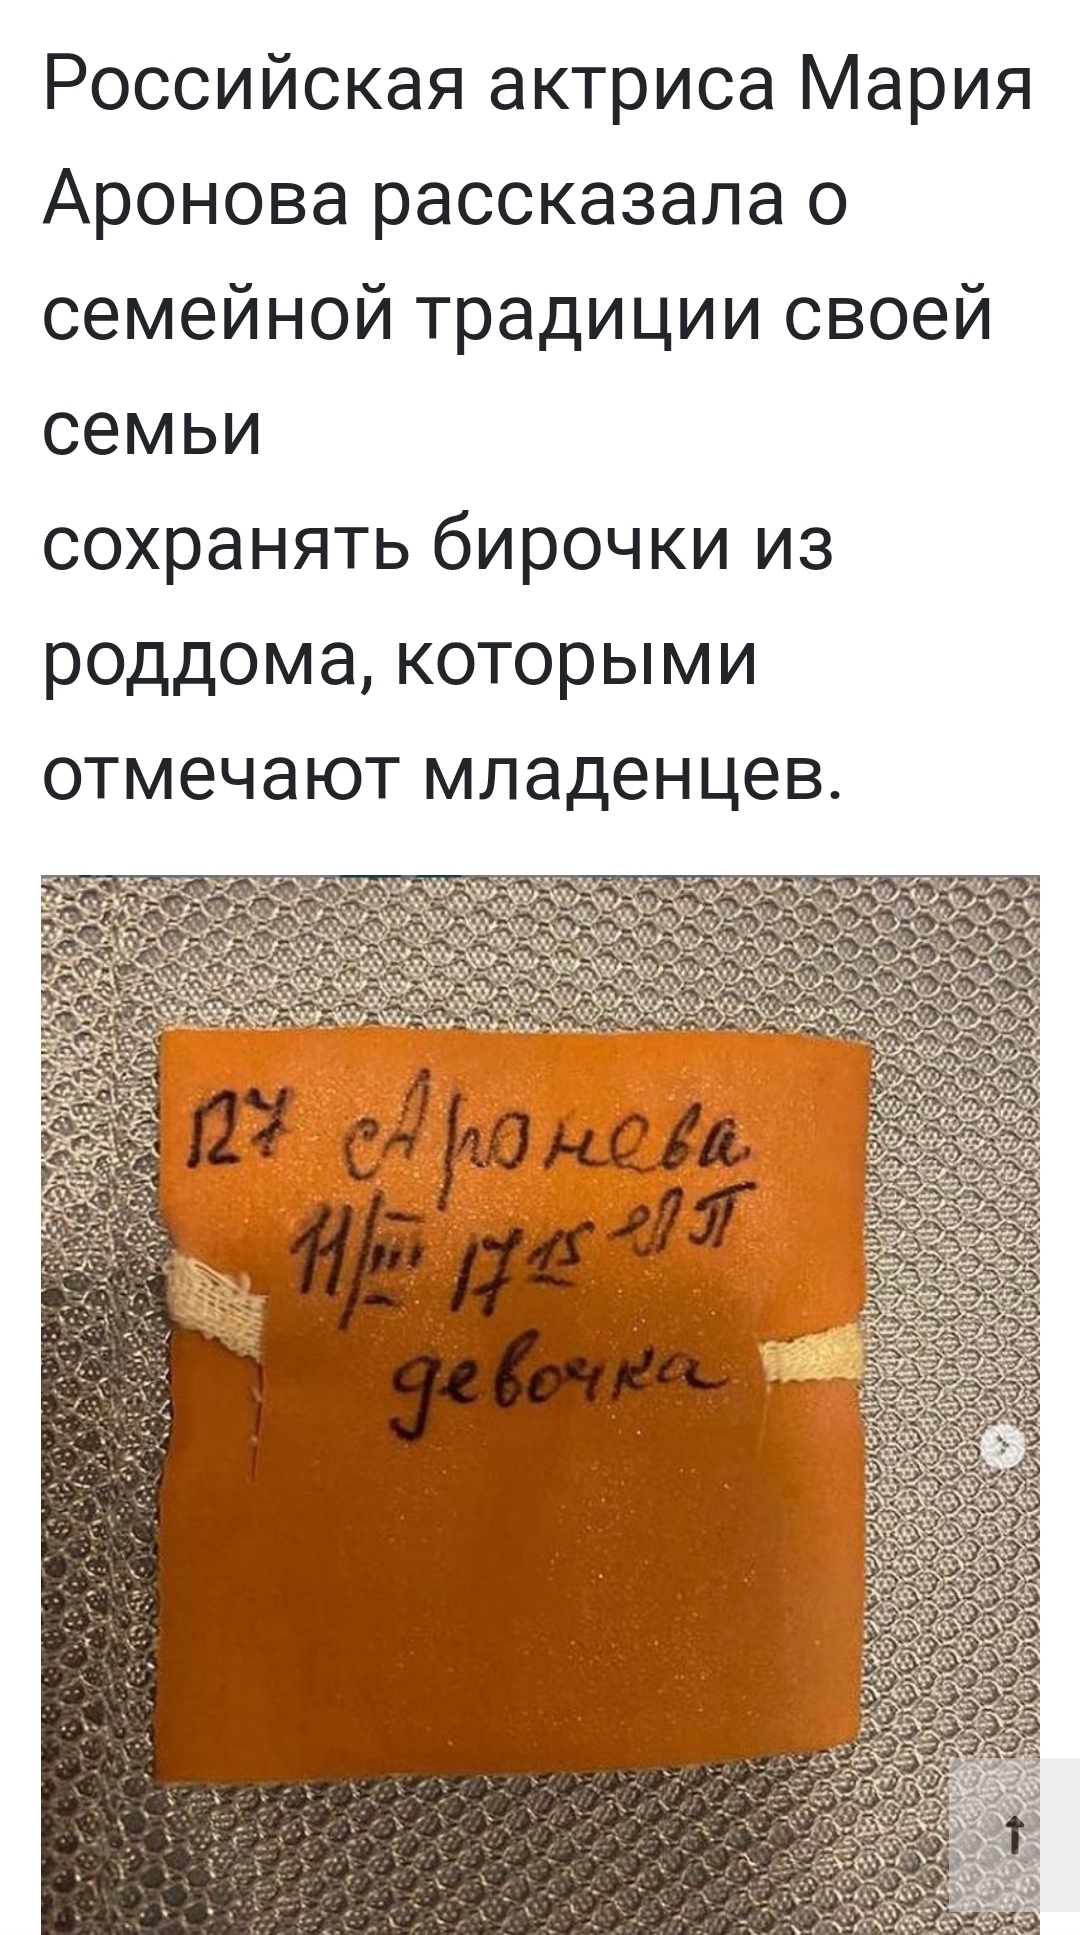 Российская актриса Мария
Аронова рассказала о
семейной традиции своей
семьи
сохранять бирочки из
роддома, которыми
отмечают младенцев.
127 Аронева
11/III 17 15
девочка